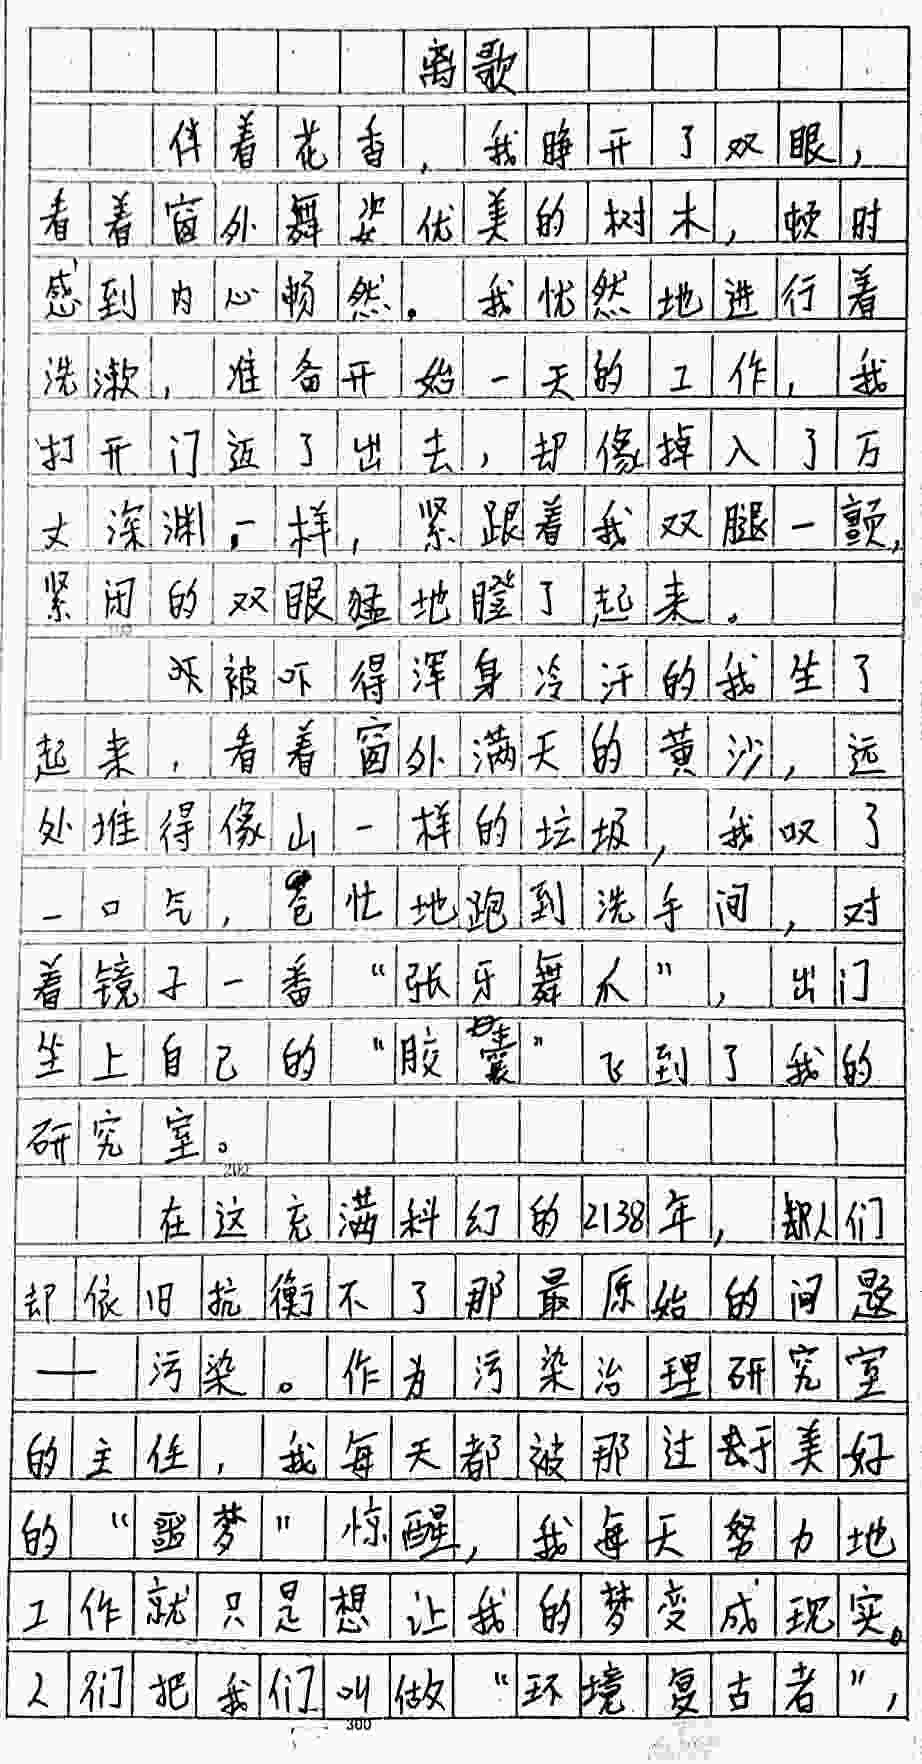 离歌
伴着花香，我睁开了双眼，
看着窗外舞姿优美的树木，顿时
感到内心畅然。我恍然地进行着
洗漱，准备开始一天的工作，我
打开门迈了出去，却像掉入了万
丈深渊一样，紧跟着我双腿一颤，
紧闭的双眼猛地瞪了起来。
被吓得浑身冷汗的我坐了
起来，看着窗外满天的黄沙，远
处堆得像山一样的垃圾，我叹了
一口气，苍忙地跑到洗手间，对
着镜子一番“张牙舞爪”，出门
坐上自己的“胶囊”飞到了我的
研究室。
在这充满科幻的2138年，人们
却依旧抗衡不了那最原始的问题
——污染。作为污染治理研究室
的主任，我每天都被那过于美好
的“噩梦”惊醒，我每天努力地
工作就只是想让我的梦变成现实。
人们把我们叫做“环境复古者”，
300